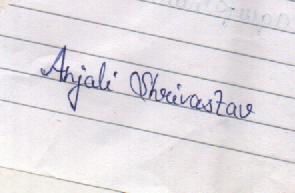 Anjali Shrivastav